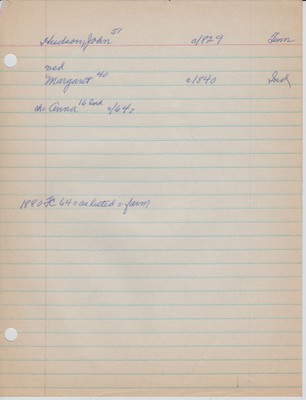 Hudson, John 51 c/1829 Tenn
md
Margaret 40 c1840 Ind
ch: Anna 16 Ind c/64:
1880 FC 64 = as listed = farm